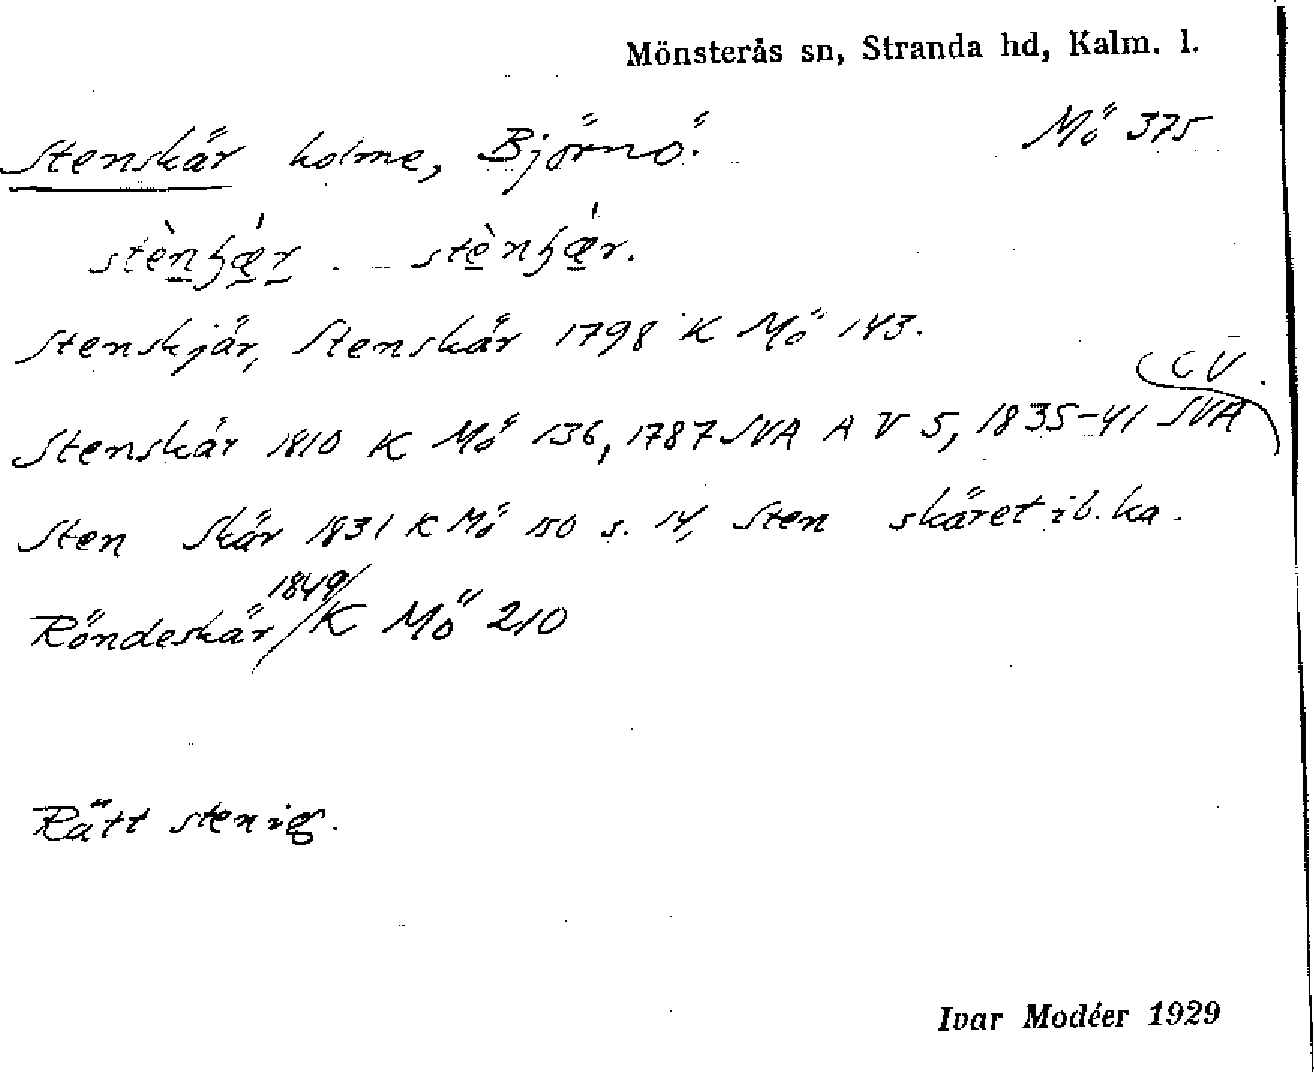 Mönsterås sn, Stranda hd, Kalm. l.
Mö 375
Stenskär holme, Björnö.
stènʂǽr. – stènʂǽr.
Stenskjär, Stenskär 1798 K Mö 143.
Stenskär 1810 K Mö 136, 1787 SVA A V 5, 1835-41 SVA C V.
Sten Skär 1831 K Mö 150 s. 14, Sten skäret ib. ka.
Röndeskär 1849 K Mö 210
Rätt stenig.
Ivar Modéer 1929